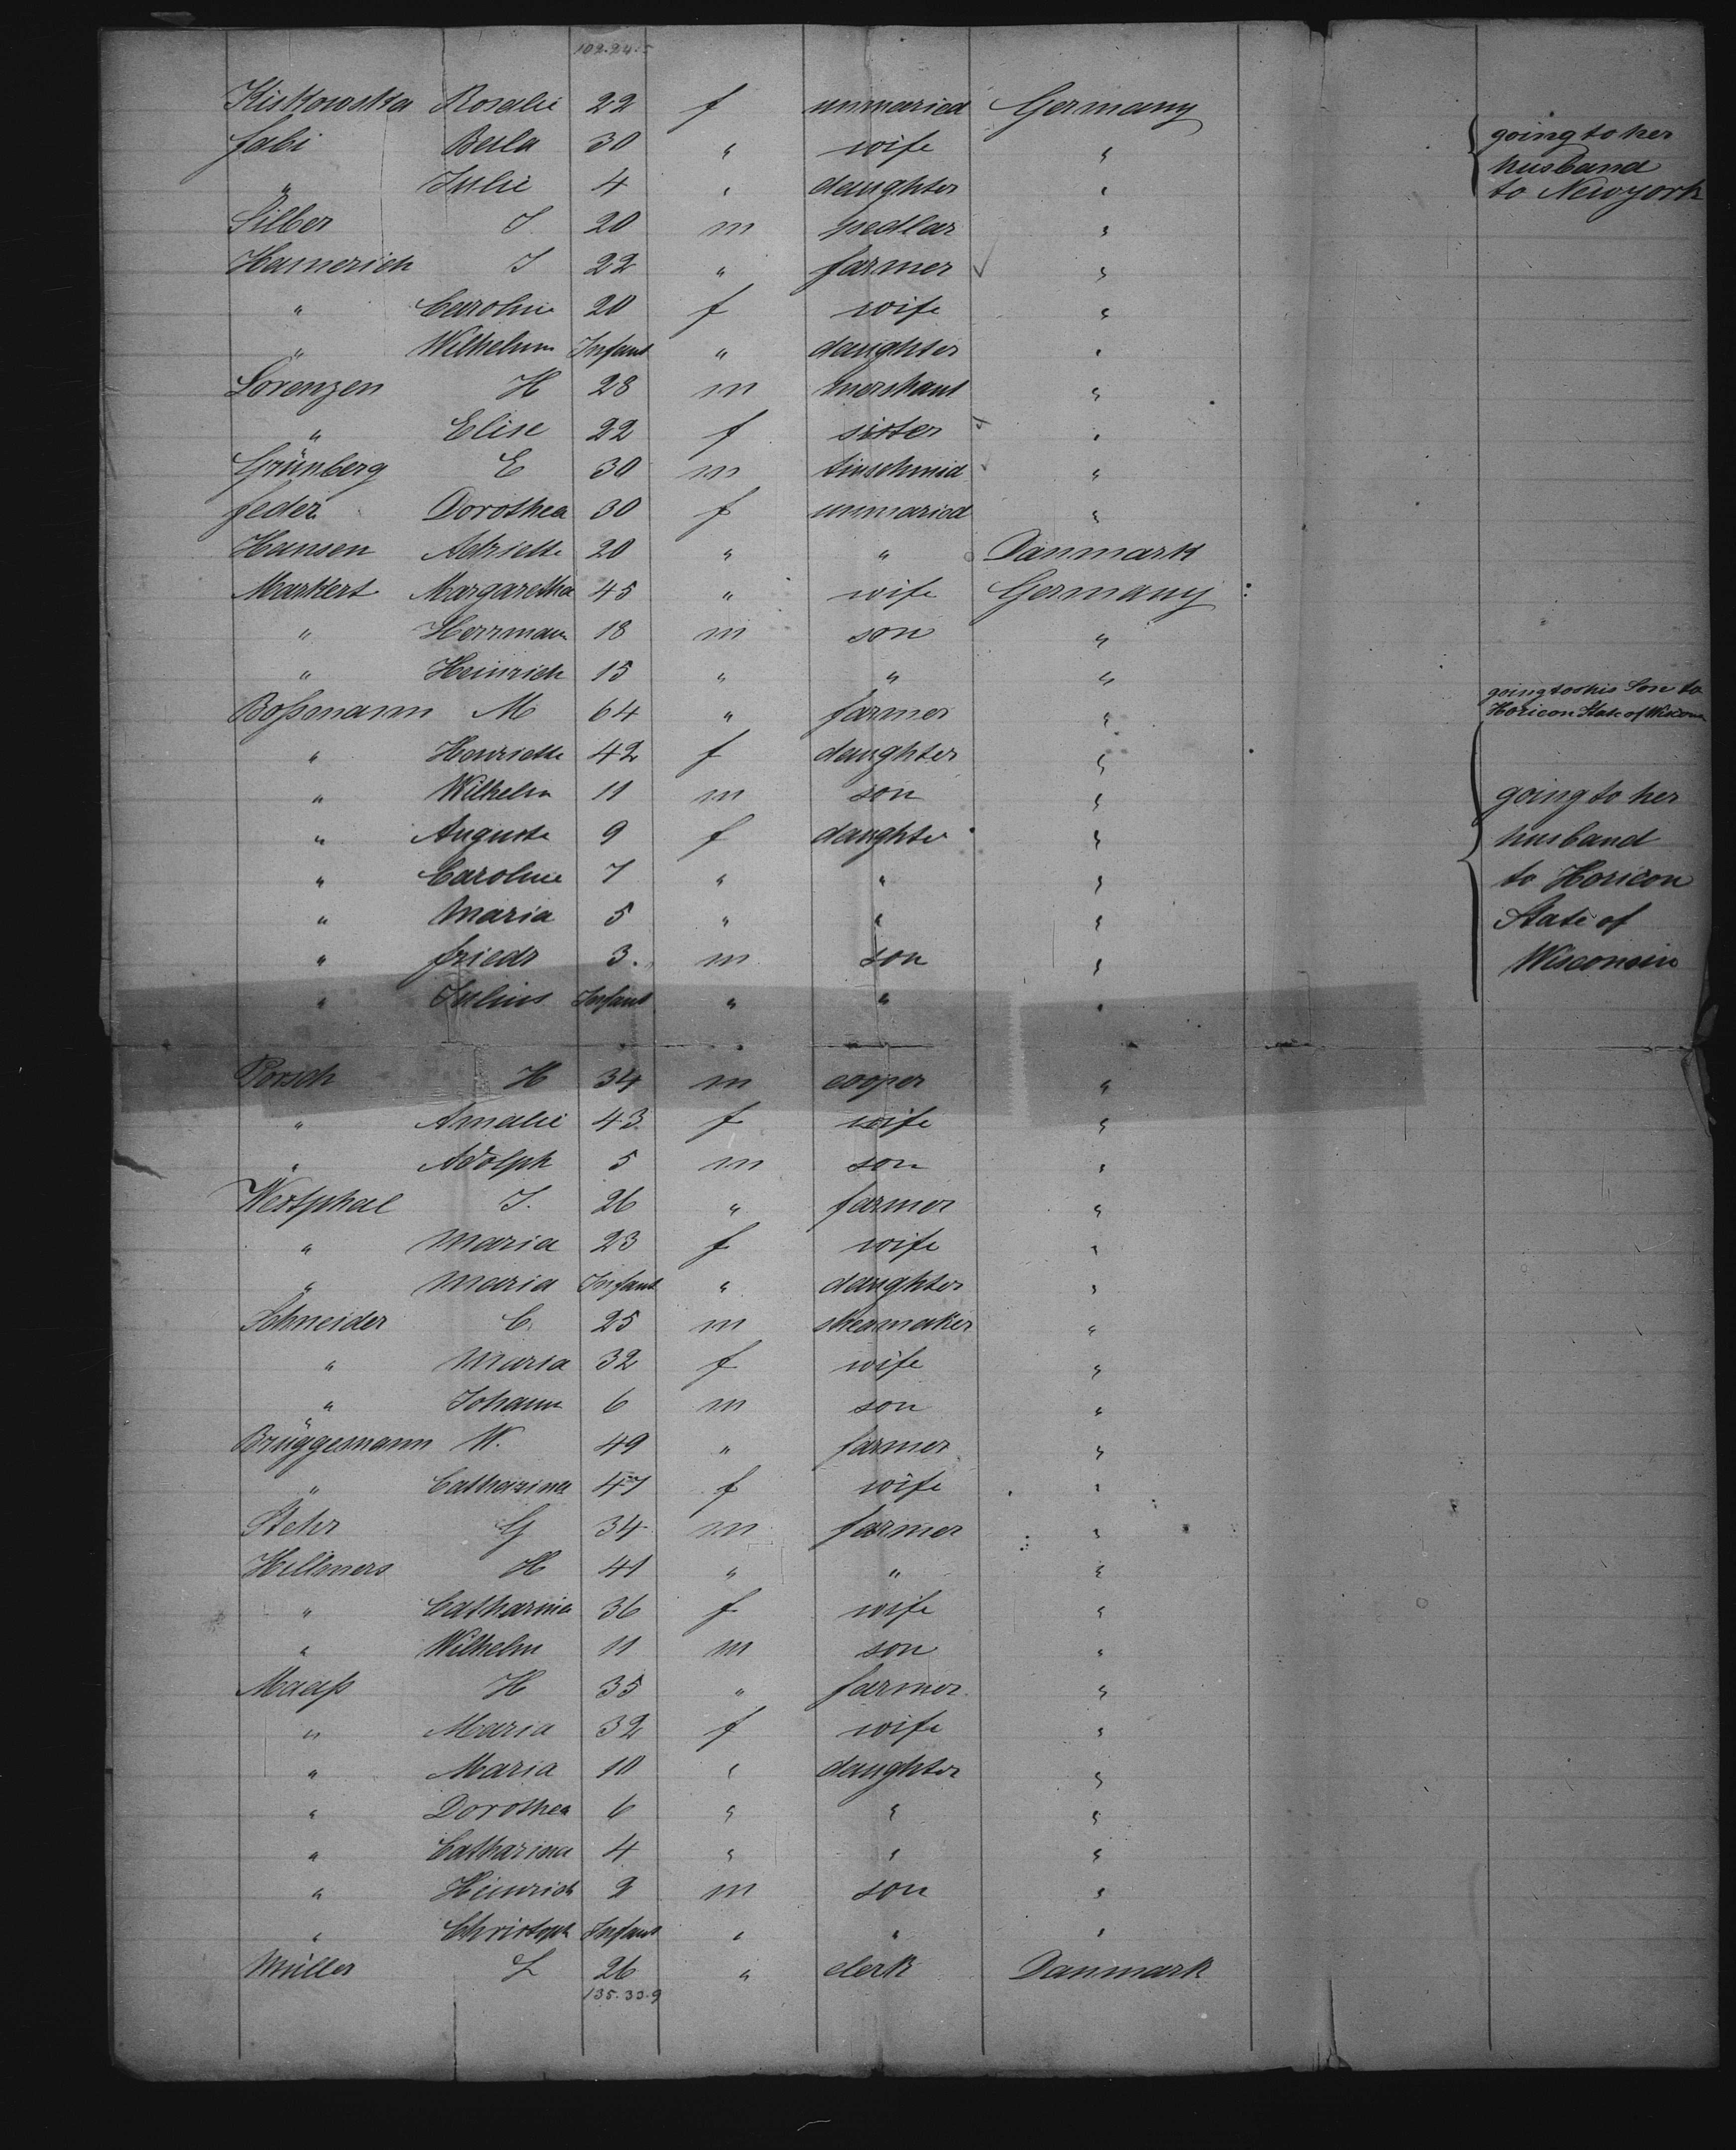 102.24.5
Kiskowska Rosalie 22 f unmaried Germany
Fabi Beila 30 " wife " going to her
" Julie 4 " daughter " husband
to Newyork
Silber J. 20 m pedlar "
Hamerich J 22 " farmer "
" Caroline 20 f wife "
" Wilhelm Infant " daughter "
Lorenzen H 28 m merchant "
" Elise 22 f sister "
Grünberg E 30 m tinschmid "
Feder Dorothea 30 f unmaried "
Hansen 20 " " Danmark
Markert Margaretha 45 " wife Germany
" Herrmann 18 m son "
" Heinrich 15 " " "
going to his Son to
Boßmann M 64 " farmer " Horicon State of Wisconsin
" Henriette 42 f daughter "
" Wilhelm 11 m son " going to her
" Auguste 9 f daughter " husband
" Caroline 7 " " " to Horicon
" Maria 5 " " " State of
" Friedr 3. m son " Wisconsin
" Julius Infant " " "
Porsch H 34 m cooper "
" Amalie 43 f wife "
" Adolph 5 m son "
Westphal J. 26 " farmer "
" Maria 23 f wife "
" Maria Infant " daughter "
Schneider C. 25 m shoamaker "
" Maria 32 f wife "
" Johann 6 m son "
Brüggesmann W. 49 " farmer "
" Catharina 47 f wife "
Stehr G 34 m farmer "
Hillmers H 41 " " "
" Catharina 36 f wife "
" Wilhelm 11 m son "
Maaß H 35 " farmer "
" Maria 32 f wife "
" Maria 10 " daughter "
" Dorothea 6 " " "
" Catharina 4 " " "
" Heinrich 2 m son "
" Christoph Infant " " "
Müller L 26 " clerk Danmark
135.33.9